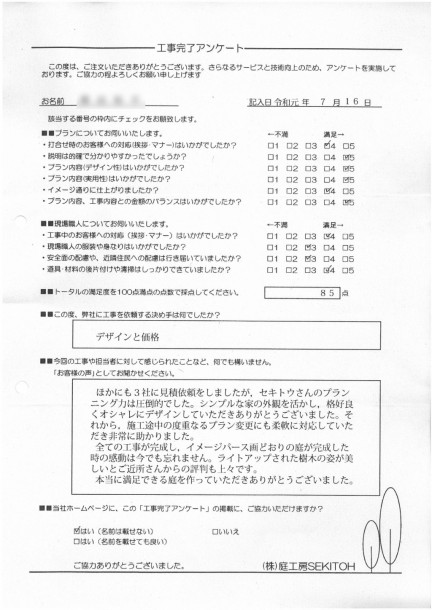 工事完了アンケート
この度は、ご注文いただきありがとうございます。さらなるサービスと技術向上のため、アンケートを実施して
おります。ご協力の程よろしくお願い申し上げます
お名前 記入日 令和元 年 7 月 16 日
該当する番号の枠内にチェックをお願致します。
■■プランについてお伺いいたします。 ←不満 満足→
・打合せ時のお客様への対応(挨拶・マナー)はいかがでしたか? □1 □2 □3 ☑4 □5
・説明は的確で分かりやすかったでしょうか? □1 □2 □3 □4 ☑5
・プラン内容(デザイン性)はいかがでしたか? □1 □2 □3 □4 ☑5
・プラン内容(実用性)はいかがでしたか? □1 □2 □3 □4 ☑5
・イメージ通りに仕上がりましたか? □1 □2 □3 ☑4 □5
・プラン内容、工事内容との金額のバランスはいかがでしたか? □1 □2 □3 □4 ☑5
■■現場職人についてお伺いいたします。 ←不満 満足→
・工事中のお客様への対応(挨拶・マナー)はいかがでしたか? □1 □2 □3 ☑4 □5
・現場職人の服装や身なりはいかがでしたか? □1 □2 ☑3 □4 □5
・安全面の配慮や、近隣住民への配慮は行き届いていましたか? □1 □2 ☑3 □4 □5
・道具・材料の後片付けや清掃はしっかりできていましたか? □1 □2 □3 ☑4 □5
■■トータルの満足度を100点満点の点数で採点してください。 85 点
■■この度、弊社に工事を依頼する決め手は何でしたか?
デザインと価格
■■今回の工事や担当者に対して感じられたことなど、何でも構いません。
「お客様の声」としてお聞かせください。
ほかにも3社に見積依頼をしましたが、セキトウさんのプラン
ニング力は圧倒的でした。シンプルな家の外観を活かし、格好良
くオシャレにデザインしていただきありがとうございました。そ
れから、施工途中の度重なるプラン変更にも柔軟に対応していた
だき非常に助かりました。
全ての工事が完成し、イメージパース画どおりの庭が完成した
時の感動は今でも忘れません。ライトアップされた樹木の姿が美
しいとご近所さんからの評判も上々です。
本当に満足できる庭を作っていただきありがとうございました。
■■当社ホームページに、この「工事完了アンケート」の掲載に、ご協力いただけますか?
☑はい (名前は載せない) □いいえ
□はい (名前を載せても良い)
ご協力ありがとうございました。 (株)庭工房SEKITOH